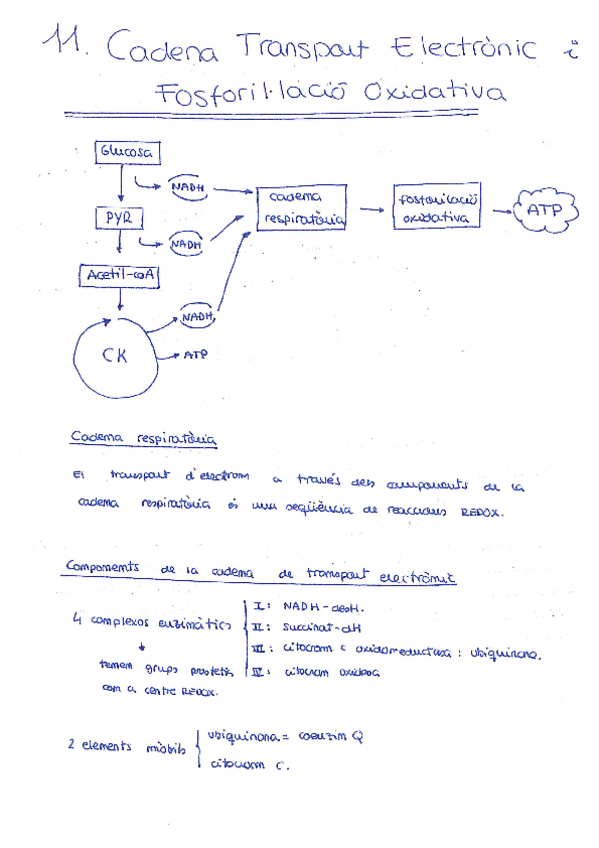 11. Cadena Transport Electrònic i
Fosforil·lació Oxidativa
Glucosa
NADH
cadena
respiratòria
fosforilació
oxidativa
ATP
PYR
NADH
Acetil-coA
NADH
CK
ATP
Cadena respiratòria
El transport d'electrons a través dels components de la
cadena respiratòria és una seqüència de reaccions REDOX.
Components de la cadena de transport electrònic
4 complexos enzimàtics
I: NADH-desH.
II: succinat-dH
III: citocrom c oxidoreductasa : ubiquinona.
IV: citocrom oxidasa
tenen grups prostètis
com a centre REDOX.
2 elements mòbils
ubiquinona = coenzim Q
citocrom c.